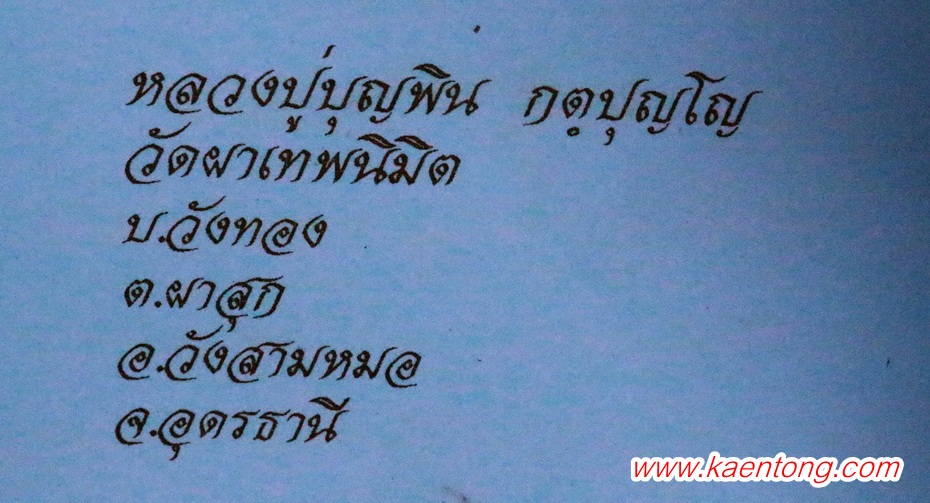 หลวงปู่บุญพิน กตฺปุญโญ
วัดผาเทพนิมิต
บ.วังทอง
ต.ผาสุก
อ.วังสามหมอ
จ.อุดรธานี
www.kaentong.com